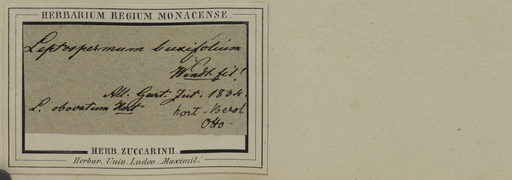 HERBARIUM REGIUM MONACENSE.
Leptospermum buxifolium
Wendt. fil!
All. Gart. Zeit. 1834.
L. obovatum Hort. hort. Berol
Otto.
HERB. ZUCCARINII.
Herbar. Univ. Ludov. Maximil.